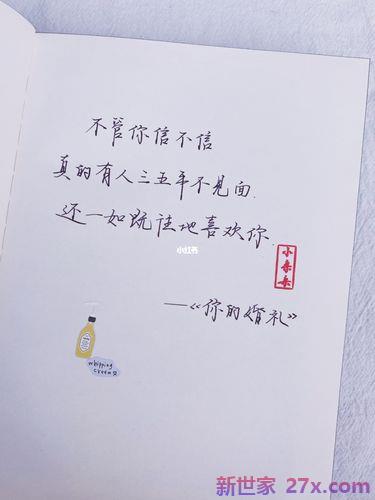 不管你信不信
真的有人三五年不见面.
还一如既往地喜欢你.
小红书
小朵朵
—《你的婚礼》
whipping
cream
新世家 27x.com